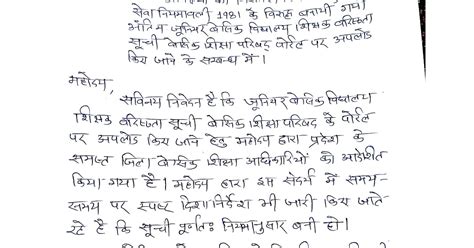 सेवा नियमावली 1981 के विरूद्ध बनायी गयी
अंतिम जूनियर बेसिक विद्यालय शिक्षक वरिष्ठता
सूची बेसिक शिक्षा परिषद पोर्टल पर अपलोड
किए जाने के सम्बन्ध में।
महोदय,
सविनय निवेदन है कि जूनियर बेसिक विद्यालय
शिक्षक वरिष्ठता सूची बेसिक शिक्षा परिषद के पोर्टल
पर अपलोड किए जाने हेतु महोदय द्वारा प्रदेश के
समस्त जिला बेसिक शिक्षा अधिकारियों को आदेशित
किया गया है। महोदय द्वारा इस संदर्भ में समय-
समय पर स्पष्ट दिशा निर्देश भी जारी किए जाते
रहे है कि सूची पूर्णतः नियमानुसार बनी हो।